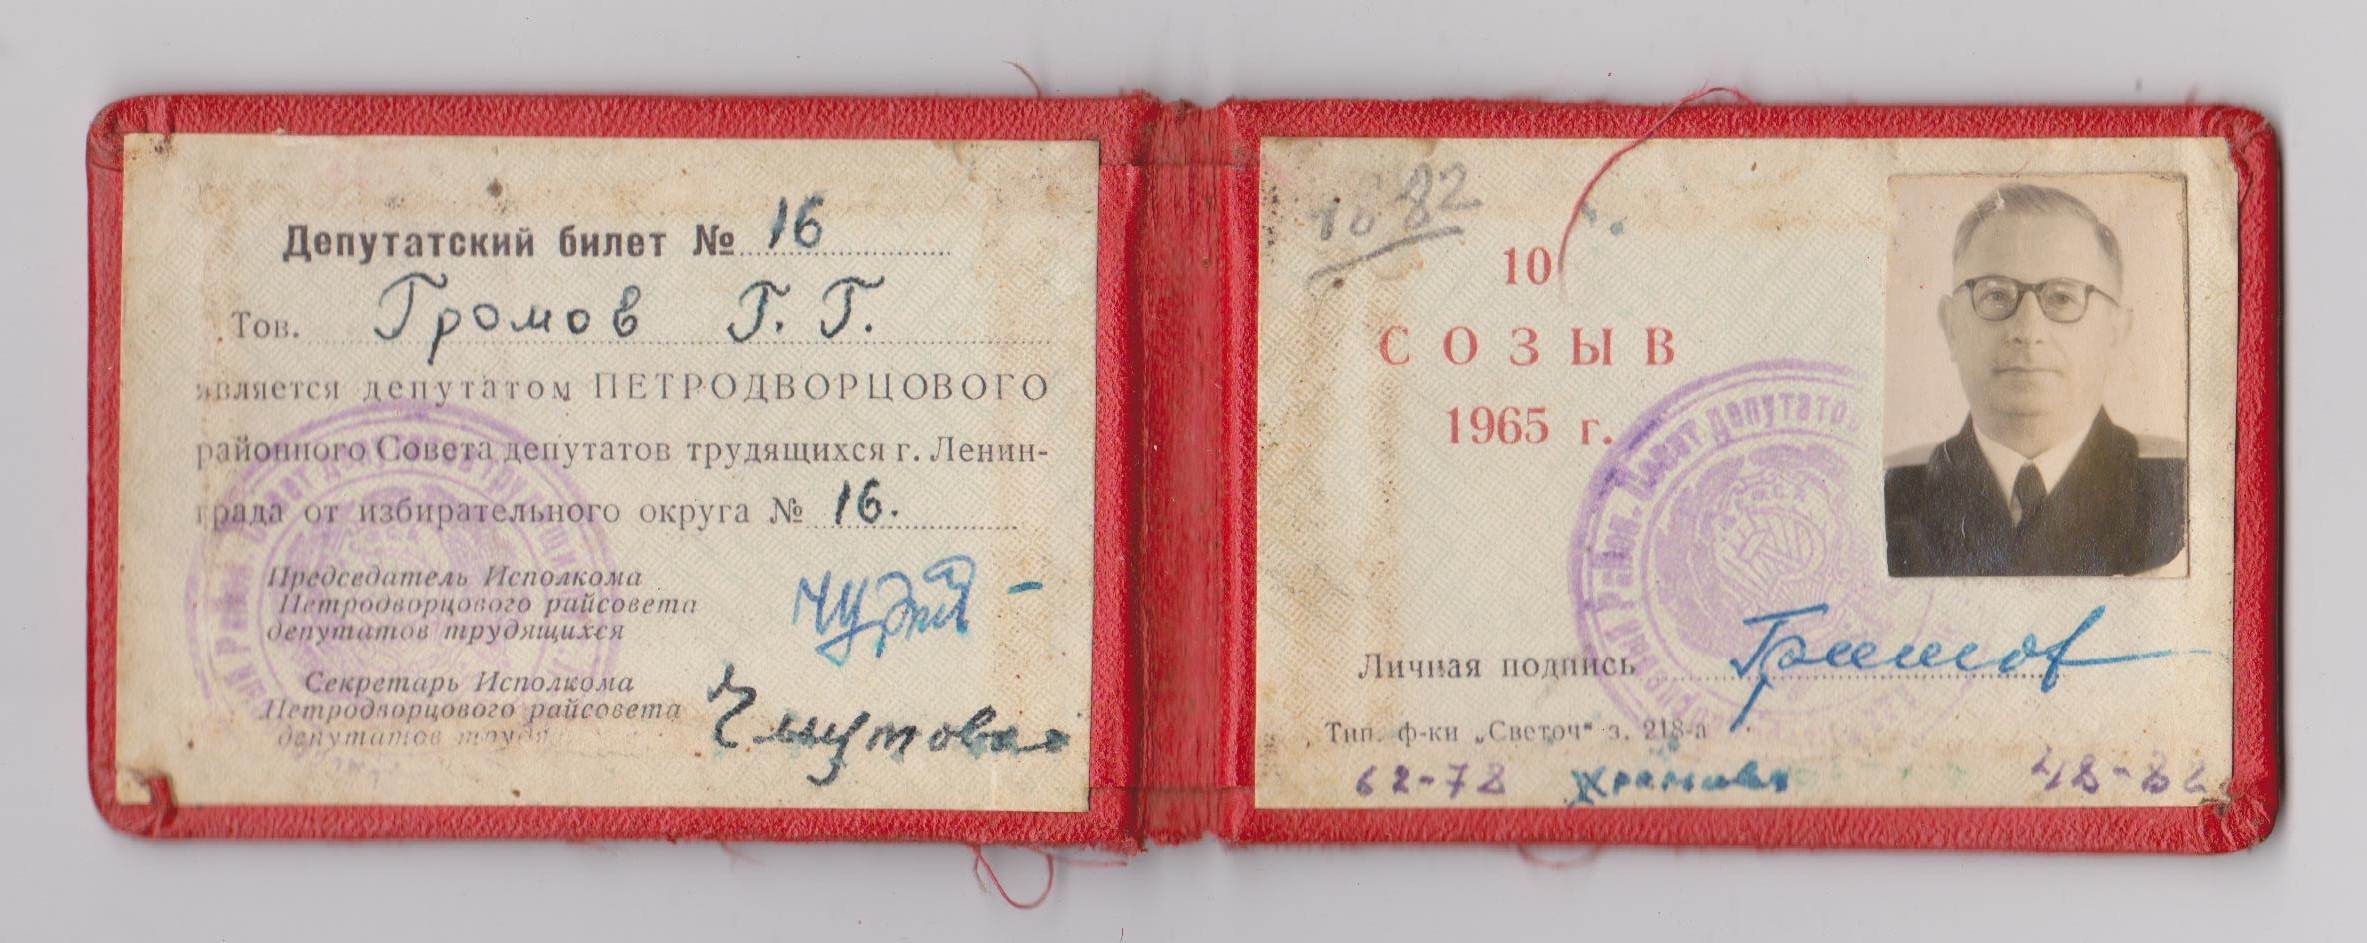 Депутатский билет № 16
Тов. Громов Г. Г.
является депутатом ПЕТРОДВОРЦОВОГО
районного Совета депутатов трудящихся г. Ленин-
града от избирательного округа № 16.
Председатель Исполкома
Петродворцового райсовета
депутатов трудящихся
Секретарь Исполкома
Петродворцового райсовета
депутатов
1882
10
СОЗЫВ
1965 г.
Совет депутатов
Личная подпись Громов
Тип. ф-ки „Светоч“ з. 218-а
62-78 48-82